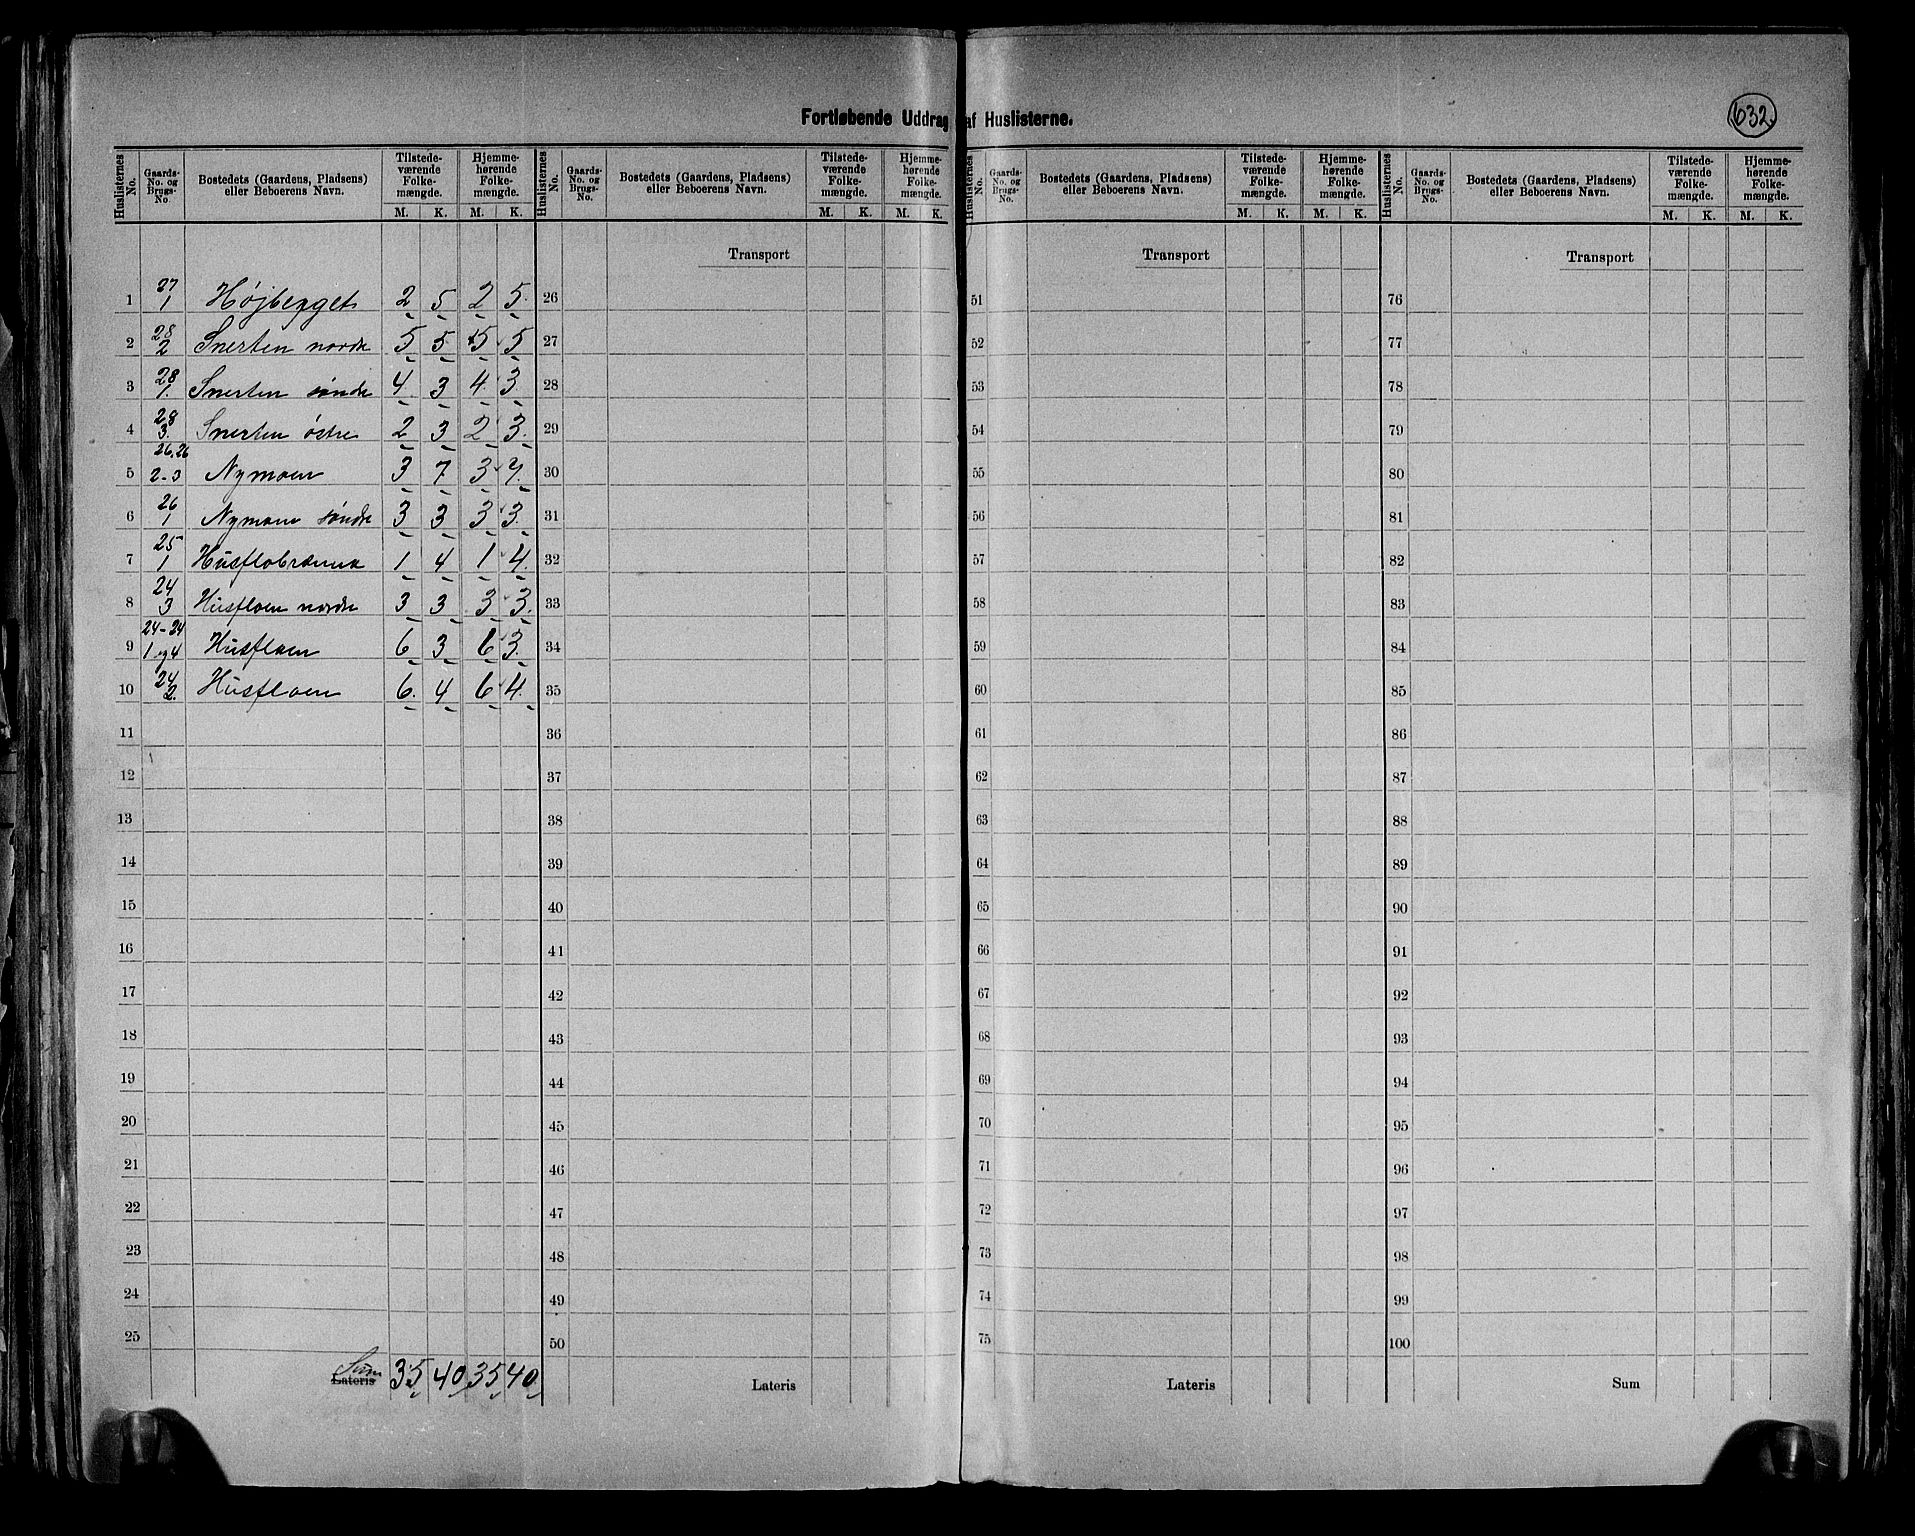 Fortløbende Uddrag af Huslisterne.
632.
Huslisternes No. | Gaards-No. og Brugs-No. | Bostedets (Gaardens, Pladsens) eller Beboerens Navn. | Tilstedeværende Folkemængde. M. K. | Hjemmehørende Folkemængde. M. K.
Huslisternes No. | Gaards-No. og Brugs-No. | Bostedets (Gaardens, Pladsens) eller Beboerens Navn. | Tilstedeværende Folkemængde. M. K. | Hjemmehørende Folkemængde. M. K.
Huslisternes No. | Gaards-No. og Brugs-No. | Bostedets (Gaardens, Pladsens) eller Beboerens Navn. | Tilstedeværende Folkemængde. M. K. | Hjemmehørende Folkemængde. M. K.
Huslisternes No. | Gaards-No. og Brugs-No. | Bostedets (Gaardens, Pladsens) eller Beboerens Navn. | Tilstedeværende Folkemængde. M. K. | Hjemmehørende Folkemængde. M. K.
Transport Transport Transport
1 27/1 Højbygget 2 5 2 5. 26 51 76
2 28/2 Snerten nordre 5 5 5 5 27 52 77
3 28/1. Snerten søndre 4. 3 4. 3. 28 53 78
4 28/3. Snerten østre 2 3 2 3. 29 54 79
5 26.26/2-3 Nymoen 3 7 3 7. 30 55 80
6 26/1 Nymoen søndre 3 3 3 3. 31 56 81
7 25/1 Husflobrænna 1 4 1 4. 32 57 82
8 24/3 Husfloen nordre 3 3 3 3. 33 58 83
9 24-24/1 og 4 Husfloen 6 3 6 3. 34 59 84
10 24/2. Husfloen 6. 4 6 4. 35 60 85
11 36 61 86
12 37 62 87
13 38 63 88
14 39 64 89
15 40 65 90
16 41 66 91
17 42 67 92
18 43 68 93
19 44 69 94
20 45 70 95
21 46 71 96
22 47 72 97
23 48 73 98
24 49 74 99
25 50 75 100
Sum
Lateris 35 40 35 40 Lateris Lateris Sum